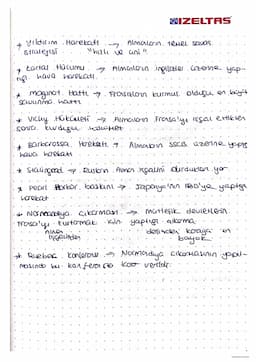 IZELTAŞ
* Yıldırım Harekatı → Almanların temel savaş
stratejisi "hızlı ve ani"
* Kartal Hücumu → Almanların İngilizler üzerine yap-
tığı hava harekatı
* Maginot Hattı → Fransızların kurmuş olduğu en büyük
savunma hattı
* Vichy Hükümeti → Almanların Fransa'yı işgal ettikten
sonra kurduğu hükümet
* Barbarossa Harekatı → Almanların SSCB üzerine yaptığı
hava harekatı
* Stalingrad → Rusların Alman işgalini durdurduğu yer
* Pearl Harbor baskını → Japonya'nın ABD'ye yaptığı
harekat
* Normandiya çıkarması → müttefik devletlerin
Fransa'yı kurtarmak için yaptığı çıkarma
denizden karaya en
büyük
* Quebec konferansı → Normandiya çıkarmasının yapıl-
masında bu konferansta karar verildi